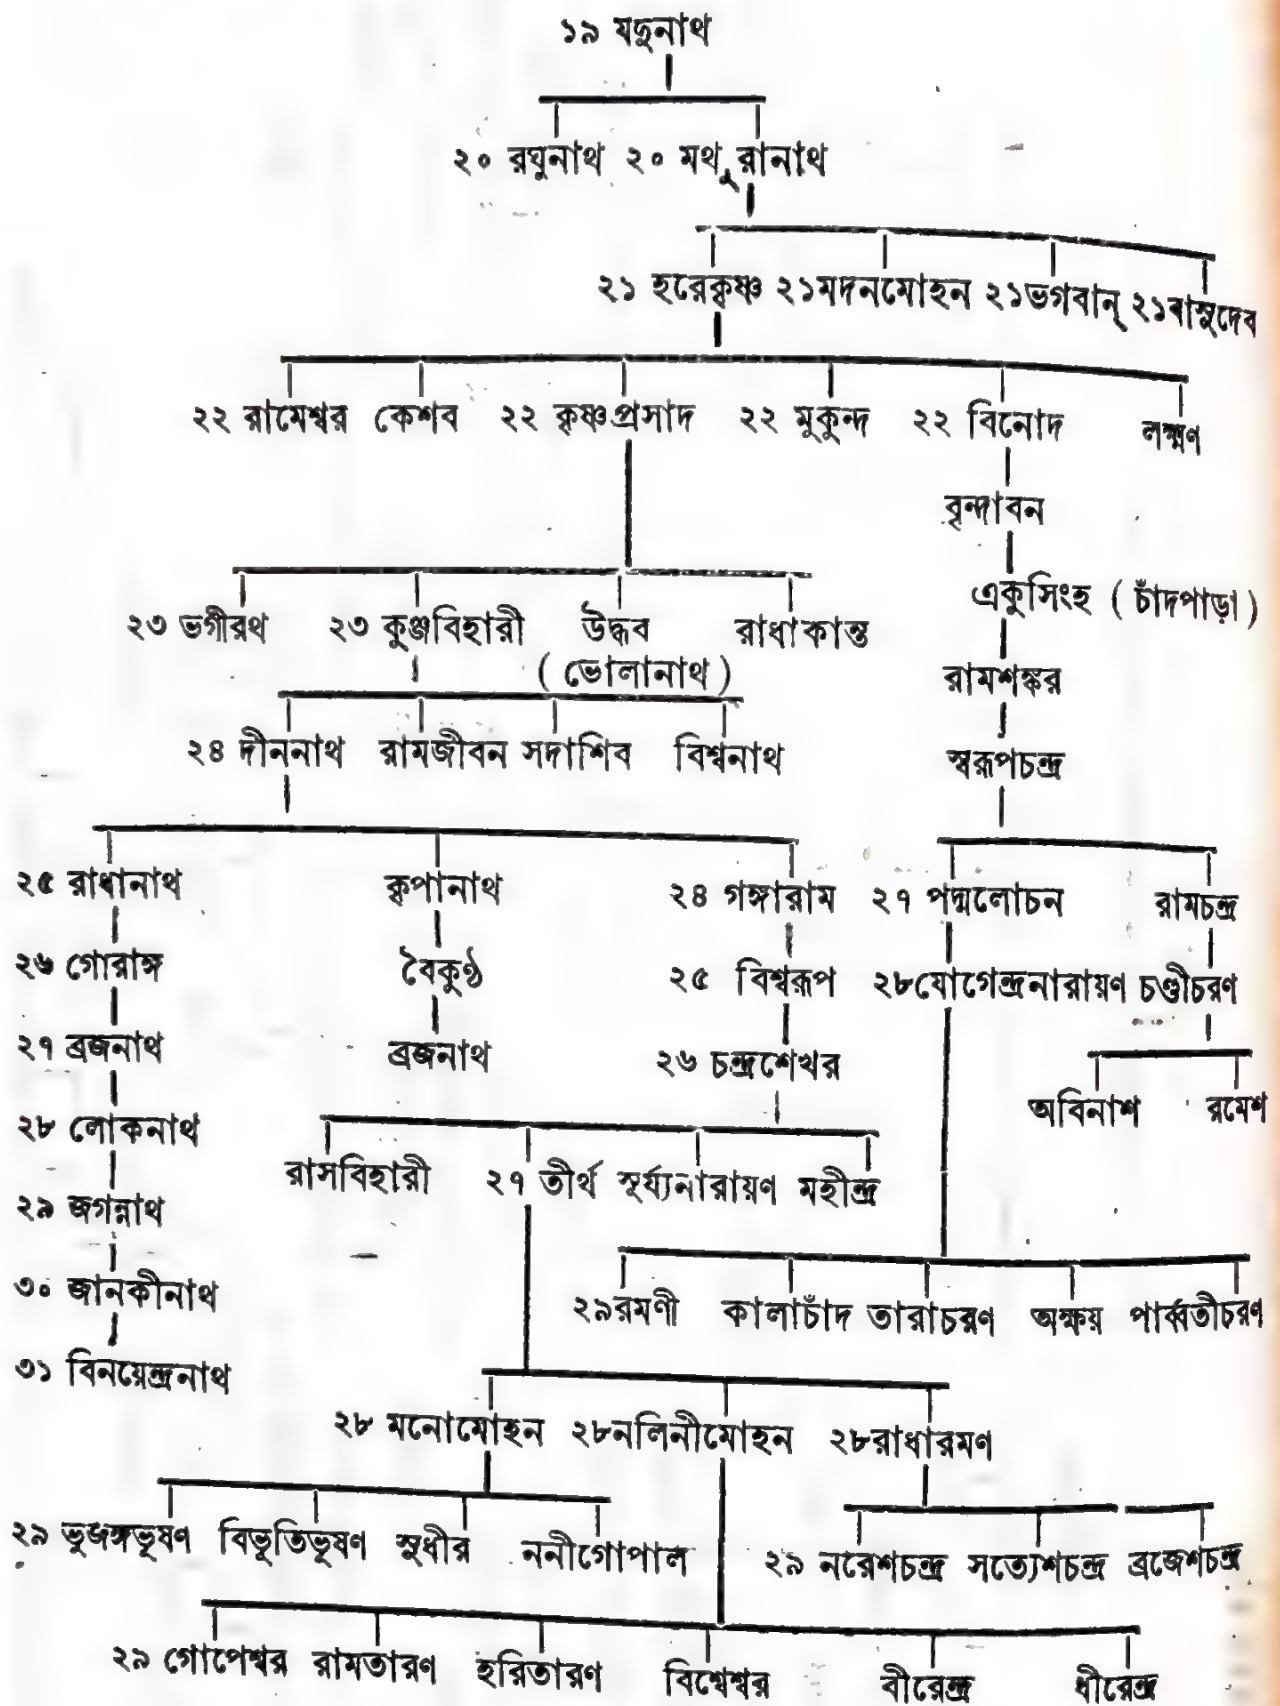 ১৯ যদুনাথ
২০ রঘুনাথ ২০ মথুরানাথ
২১ হরেকৃষ্ণ ২১মদনমোহন ২১ভগবান্ ২১বাসুদেব
২২ রামেশ্বর কেশব ২২ কৃষ্ণপ্রসাদ ২২ মুকুন্দ ২২ বিনোদ লক্ষ্মণ
বৃন্দাবন
একুসিংহ (চাঁদপাড়া)
২৩ ভগীরথ ২৩ কুঞ্জবিহারী উদ্ধব রাধাকান্ত
(ভোলানাথ) রামশঙ্কর
২৪ দীননাথ রামজীবন সদাশিব বিশ্বনাথ স্বরূপচন্দ্র
২৫ রাধানাথ কৃপানাথ ২৪ গঙ্গারাম ২৭ পদ্মলোচন রামচন্দ্র
২৬ গোরাঙ্গ বৈকুণ্ঠ ২৫ বিশ্বরূপ ২৮যোগেন্দ্রনারায়ণ চণ্ডীচরণ
২৭ ব্রজনাথ ব্রজনাথ ২৬ চন্দ্রশেখর
অবিনাশ রমেশ
২৮ লোকনাথ
রাসবিহারী ২৭ তীর্থ সূর্য্যনারায়ণ মহীন্দ্র
২৯ জগন্নাথ
৩০ জানকীনাথ
২৯রমণী কালাচাঁদ তারাচরণ অক্ষয় পার্ব্বতীচরণ
৩১ বিনয়েন্দ্রনাথ
২৮ মনোমোহন ২৮নলিনীমোহন ২৮রাধারমণ
২৯ ভুজঙ্গভূষণ বিভূতিভূষণ সুধীর ননীগোপাল ২৯ নরেশচন্দ্র সত্যেশচন্দ্র ব্রজেশচন্দ্র
২৯ গোপেশ্বর রামতারণ হরিতারণ বিশ্বেশ্বর বীরেন্দ্র ধীরেন্দ্র